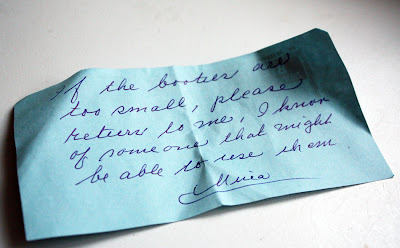 If the booties are
too small, please
return to me, I know
of someone that might
be able to use them.